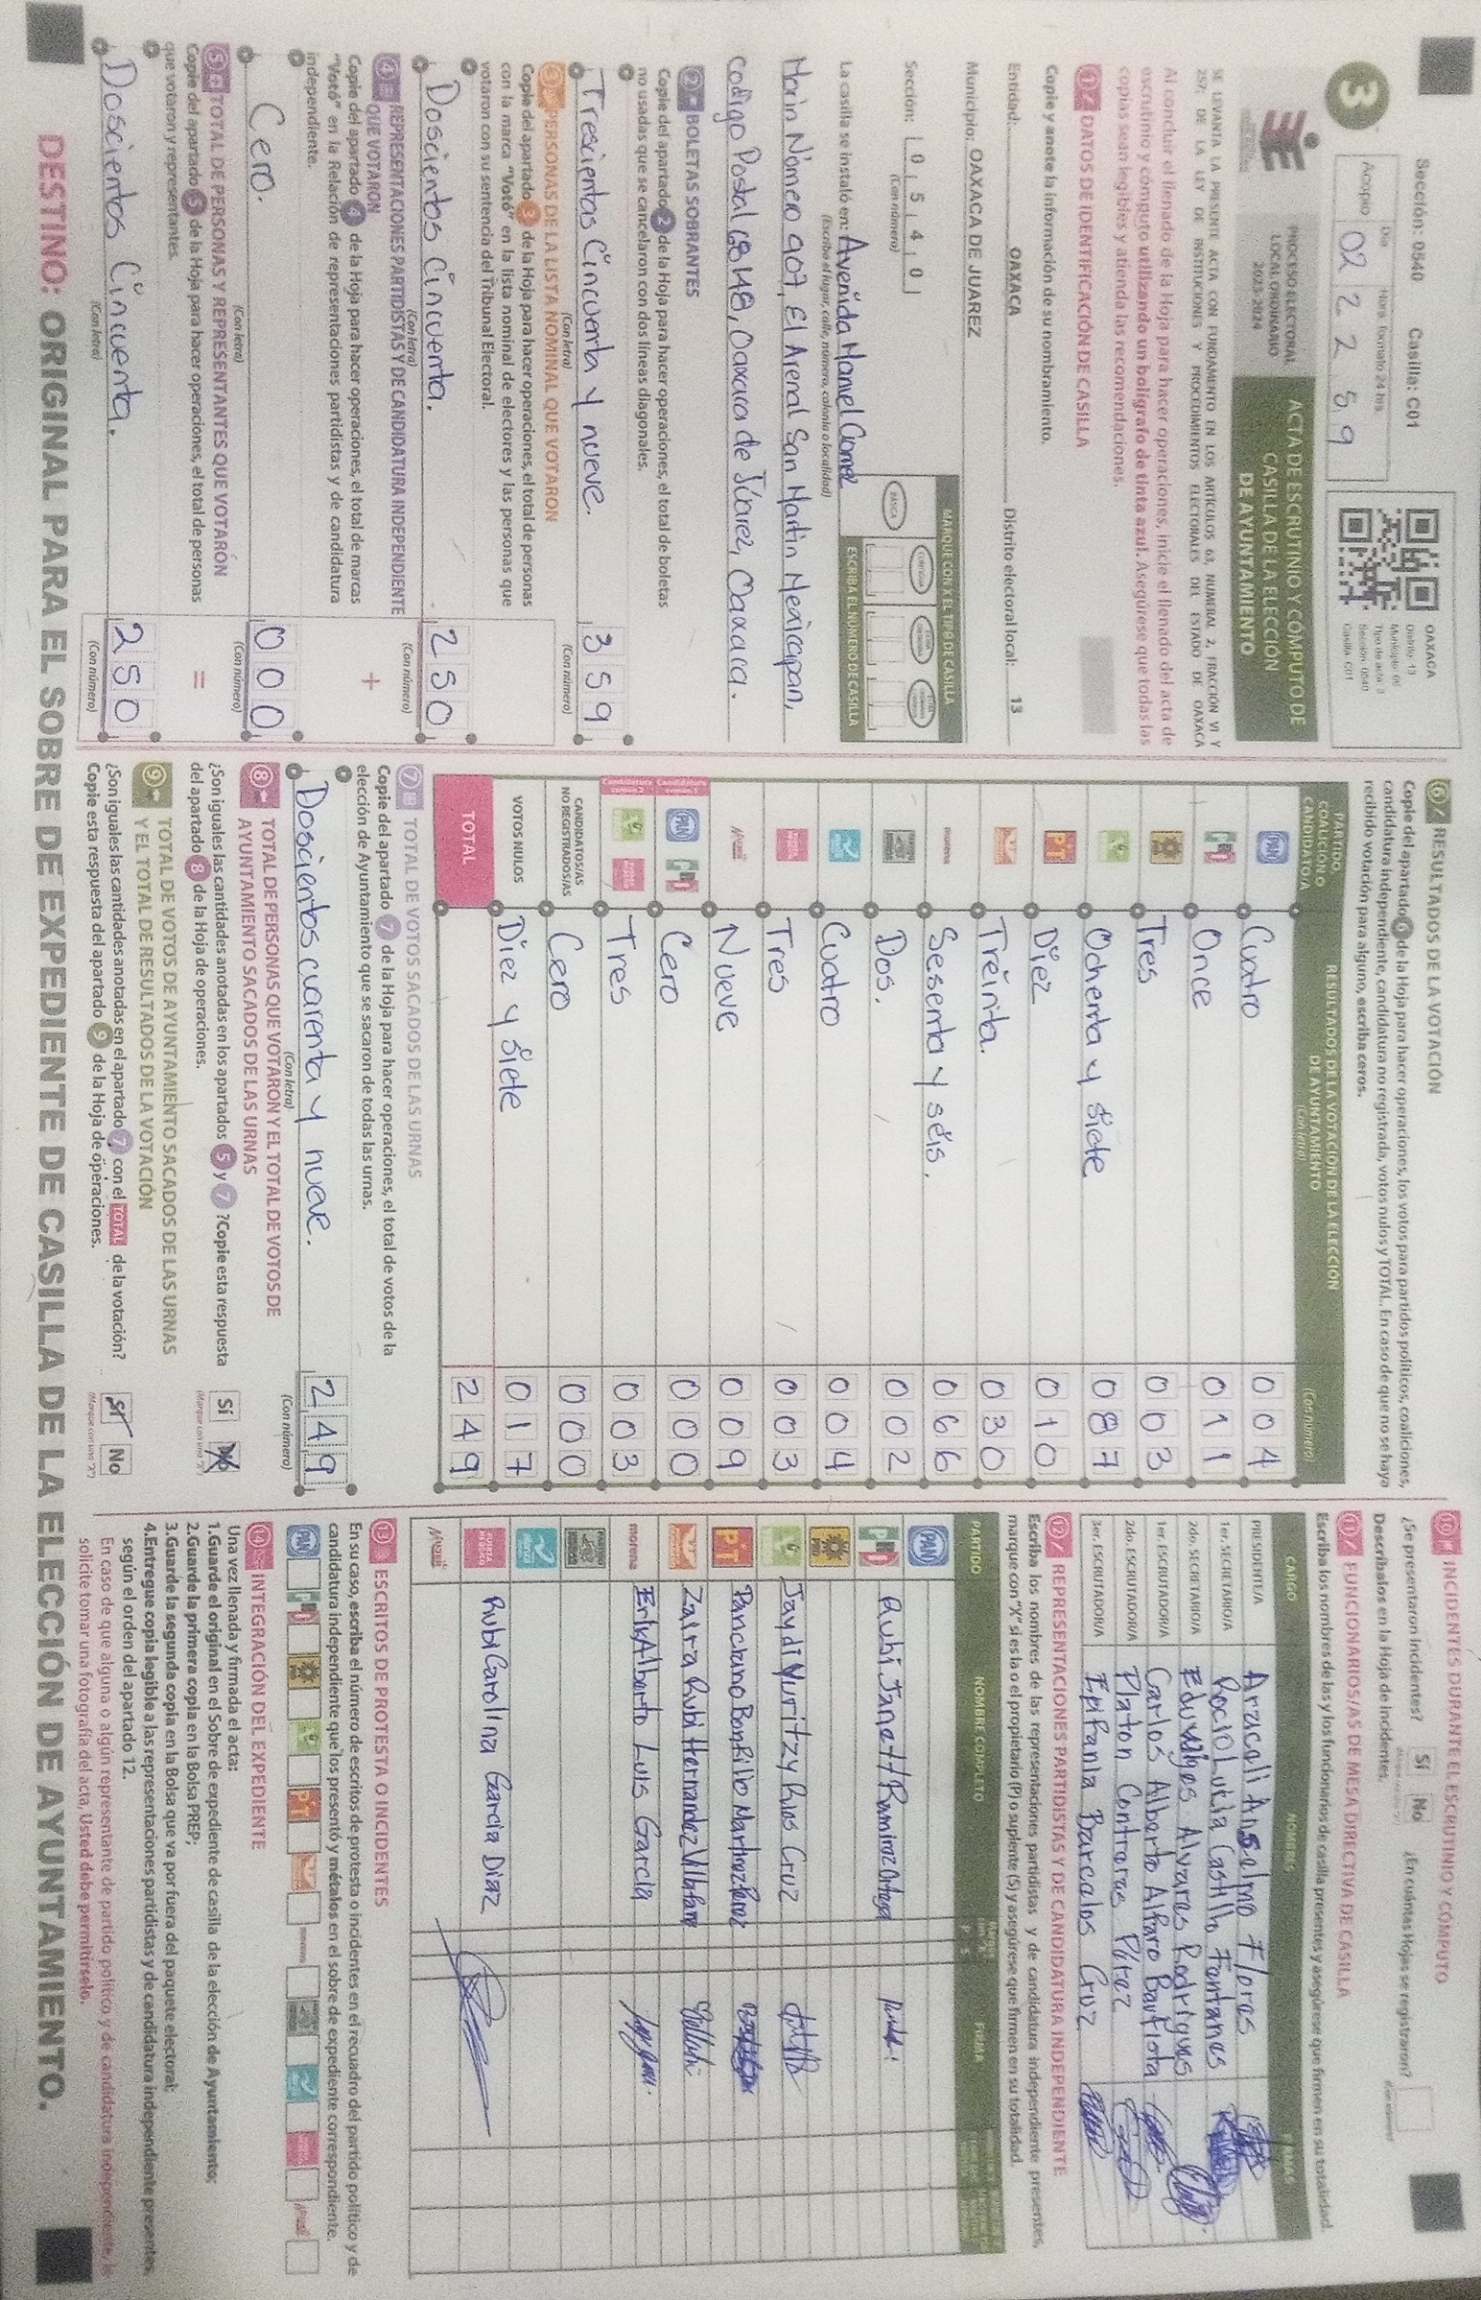 Sección: 0540 Casilla: C01
3
Acopio
Día
Hora formato 24 hrs.
02 22 59
OAXACA
Distrito: 13
Sección: 0540
Casilla: C01
PROCESO ELECTORAL
LOCAL ORDINARIO
2023-2024
ACTA DE ESCRUTINIO Y CÓMPUTO DE
CASILLA DE LA ELECCIÓN
DE AYUNTAMIENTO
SE LEVANTA LA PRESENTE ACTA CON FUNDAMENTO EN LOS ARTÍCULOS 63, NUMERAL 2, FRACCIÓN VI Y
257; DE LA LEY DE INSTITUCIONES Y PROCEDIMIENTOS ELECTORALES DEL ESTADO DE OAXACA
Al concluir el llenado de la Hoja para hacer operaciones, inicie el llenado del acta de
escrutinio y cómputo utilizando un bolígrafo de tinta azul. Asegúrese que todas las
copias sean legibles y atienda las recomendaciones.
1 DATOS DE IDENTIFICACIÓN DE CASILLA
Copie y anote la información de su nombramiento.
Entidad: OAXACA Distrito electoral local: 13
Municipio: OAXACA DE JUAREZ
Sección: 0 5 4 0
(Con número)
MARQUE CON X EL TIPO DE CASILLA
BÁSICA
ESCRIBA EL NÚMERO DE CASILLA
La casilla se instaló en: Avenida Manuel Gomez
(Escriba el lugar, calle, número, colonia o localidad)
Morin Número 907, El Arenal San Martin Mexicapan,
Codigo Postal 68148, Oaxaca de Júarez, Oaxaca.
2 BOLETAS SOBRANTES
Copie del apartado 2 de la Hoja para hacer operaciones, el total de boletas
no usadas que se cancelaron con dos líneas diagonales.
Trescientas Cincuenta y nueve. 359
(Con letra) (Con número)
3 PERSONAS DE LA LISTA NOMINAL QUE VOTARON
Copie del apartado 3 de la Hoja para hacer operaciones, el total de personas
con la marca "Votó" en la lista nominal de electores y las personas que
votaron con su sentencia del Tribunal Electoral.
Doscientos Cincuenta. 250
(Con letra) (Con número)
4 REPRESENTACIONES PARTIDISTAS Y DE CANDIDATURA INDEPENDIENTE
QUE VOTARON
+
Copie del apartado 4 de la Hoja para hacer operaciones, el total de marcas
"Votó" en la Relación de representaciones partidistas y de candidatura
independiente.
Cero. 000
(Con letra) (Con número)
5 TOTAL DE PERSONAS Y REPRESENTANTES QUE VOTARÓN
=
Copie del apartado 5 de la Hoja para hacer operaciones, el total de personas
que votaron y representantes.
Doscientos Cincuenta. 250
(Con letra) (Con número)
6 RESULTADOS DE LA VOTACIÓN
Copie del apartado 6 de la Hoja para hacer operaciones, los votos para partidos políticos, coaliciones,
candidatura independiente, candidatura no registrada, votos nulos y TOTAL. En caso de que no se haya
recibido votación para alguno, escriba ceros.
PARTIDO,
COALICIÓN O
CANDIDATO/A
RESULTADOS DE LA VOTACIÓN DE LA ELECCIÓN
DE AYUNTAMIENTO
(Con letra)
(Con número)
PAN Cuatro 004
PRI Once 011
PRD Tres 003
Ochenta y siete 087
PT Diez 010
Tréinta. 030
morena Sesenta y séis. 066
Dos. 002
Cuatro 004
Tres 003
Nueve 009
PAN PRI Cero 000
Tres 003
CANDIDATOS/AS
NO REGISTRADOS/AS
Cero 000
VOTOS NULOS Diez y siete 017
TOTAL 249
7 TOTAL DE VOTOS SACADOS DE LAS URNAS
Copie del apartado 7 de la Hoja para hacer operaciones, el total de votos de la
elección de Ayuntamiento que se sacaron de todas las urnas.
Doscientos cuarenta y nueve. 249
(Con letra) (Con número)
8 TOTAL DE PERSONAS QUE VOTARON Y EL TOTAL DE VOTOS DE
AYUNTAMIENTO SACADOS DE LAS URNAS
¿Son iguales las cantidades anotadas en los apartados 5 y 7 ? Copie esta respuesta
del apartado 8 de la Hoja de operaciones.
Sí No
(Marque con una "X")
9 TOTAL DE VOTOS DE AYUNTAMIENTO SACADOS DE LAS URNAS
Y EL TOTAL DE RESULTADOS DE LA VOTACIÓN
¿Son iguales las cantidades anotadas en el apartado 7 con el TOTAL de la votación?
Copie esta respuesta del apartado 9 de la Hoja de operaciones.
Sí No
(Marque con una "X")
10 INCIDENTES DURANTE EL ESCRUTINIO Y CÓMPUTO
¿Se presentaron incidentes? Sí No ¿En cuántas Hojas se registraron?
Descríbalos en la Hoja de Incidentes.
11 FUNCIONARIOS/AS DE MESA DIRECTIVA DE CASILLA
Escriba los nombres de las y los funcionarios de casilla presentes y asegúrese que firmen en su totalidad.
CARGO NOMBRES FIRMAS
PRESIDENTE/A Araceli Anselmo Flores
1er. SECRETARIO/A Rocio Lucila Castillo Fontanes
2do. SECRETARIO/A Eduviges Alvares Rodrigues
1er. ESCRUTADOR/A Carlos Alberto Alfaro Bautista
2do. ESCRUTADOR/A Platon Contreras Pérez
3er. ESCRUTADOR/A Epifania Barcalos Cruz
12 REPRESENTACIONES PARTIDISTAS Y DE CANDIDATURA INDEPENDIENTE
Escriba los nombres de las representaciones partidistas y de candidatura independiente presentes,
marque con "X" si es la o el propietario (P) o suplente (S) y asegúrese que firmen en su totalidad.
PARTIDO NOMBRE COMPLETO P S FIRMA
PAN
PRI Rubi Janett Ramirez Ortega
PRD
Jaydi Yuritzy Rios Cruz
PT Panciano Bonfilio Martinez Perez
Zaira Rubi Hernandez Villafañe
morena Erik Alberto Luis Garcia
Rubi Carolina Garcia Diaz
13 ESCRITOS DE PROTESTA O INCIDENTES
En su caso, escriba el número de escritos de protesta o incidentes en el recuadro del partido político y de
candidatura independiente que los presentó y métalos en el sobre de expediente correspondiente.
PAN PRI PRD PT morena
14 INTEGRACIÓN DEL EXPEDIENTE
Una vez llenada y firmada el acta:
1.Guarde el original en el Sobre de expediente de casilla de la elección de Ayuntamiento;
2.Guarde la primera copia en la Bolsa PREP;
3.Guarde la segunda copia en la Bolsa que va por fuera del paquete electoral;
4.Entregue copia legible a las representaciones partidistas y de candidatura independiente presentes,
según el orden del apartado 12.
En caso de que alguna o algún representante de partido político y de candidatura independiente, le
solicite tomar una fotografía del acta, Usted debe permitírselo.
DESTINO: ORIGINAL PARA EL SOBRE DE EXPEDIENTE DE CASILLA DE LA ELECCIÓN DE AYUNTAMIENTO.